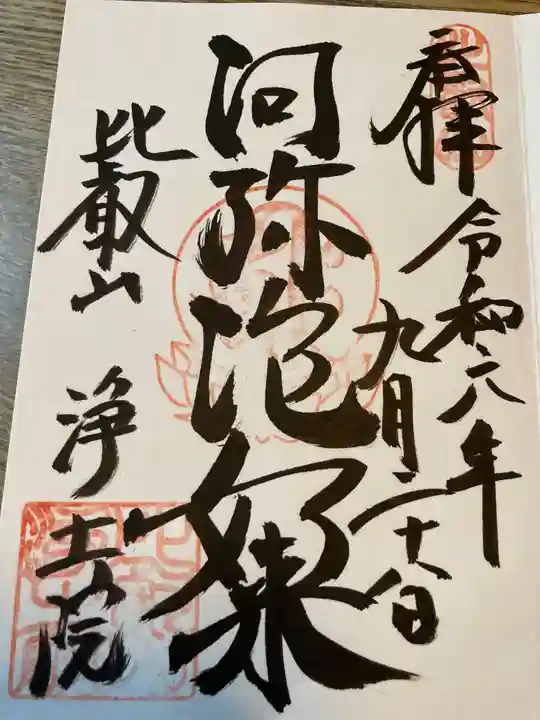 奉拝
令和六年
九月二十八日
阿弥陀如来
比叡山
浄土院